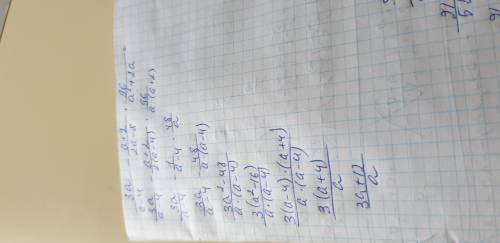 3a/(a-4) - (a+2)/(2a-8) · 96/(a²+2a) =
3a/(a-4) - (a+2)/(2(a-4)) · 96/(a(a+2))
3a/(a-4) - 1/(a-4) · 48/a
3a/(a-4) - 48/(a·(a-4))
(3a²-48)/(a·(a-4))
3(a²-16)/(a·(a-4))
3(a-4)·(a+4)/(a·(a-4))
3(a+4)/a
(3a+12)/a